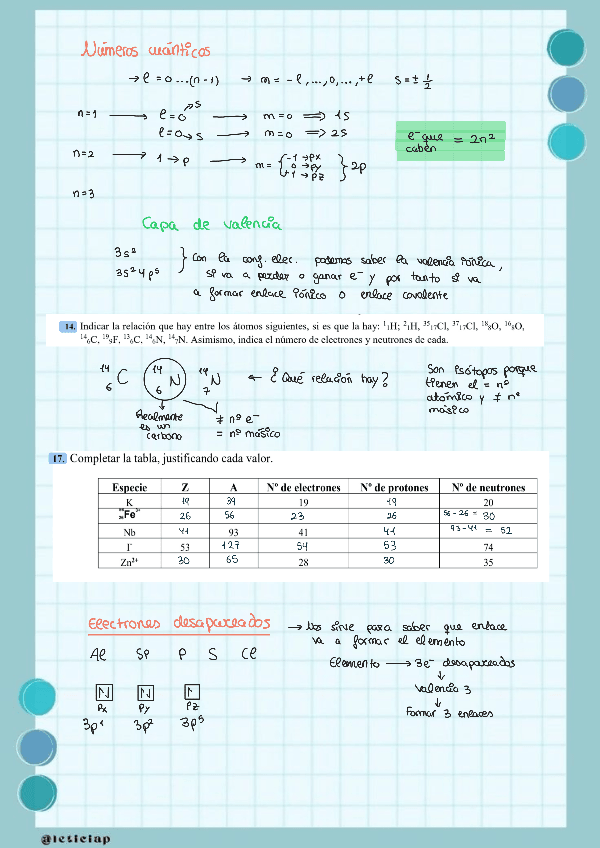 Números cuánticos
→ l = 0 ... (n-1) → m = -l, ..., 0, ..., +l s = ± 1/2
n=1 → l=0 → s → m=0 ⇒ 1s
l=0 → s → m=0 ⇒ 2s
e⁻ que caben = 2n²
n=2 → 1 → p → m = { -1 → px
0 → py
+1 → pz } 2p
n=3
Capa de valencia
3s²
3s² 4p⁵
} Con la conf. elec. podemos saber la valencia iónica,
si va a perder o ganar e⁻ y por tanto si va
a formar enlace iónico o enlace covalente
14. Indicar la relación que hay entre los átomos siguientes, si es que la hay: ¹₁H; ²₁H, ³⁵₁₇Cl, ³⁷₁₇Cl, ¹⁸₈O, ¹⁶₈O,
¹⁴₆C, ¹⁹₉F, ¹³₆C, ¹⁴₆N, ¹⁴₇N. Asimismo, indica el número de electrones y neutrones de cada.
¹⁴₆C ¹⁴₆N ¹⁴₇N ← ¿Qué relación hay?
Son isótopos porque
tienen el = nº
atómico y ≠ nº
másico
Realmente
es un
carbono
≠ nº e⁻
= nº másico
17. Completar la tabla, justificando cada valor.
Especie Z A Nº de electrones Nº de protones Nº de neutrones
K 19 39 19 19 20
⁵⁶₂₆Fe³⁺ 26 56 23 26 56 - 26 = 30
Nb 41 93 41 41 93 - 41 = 52
I⁻ 53 127 54 53 74
Zn²⁺ 30 65 28 30 35
Electrones desapareados
→ Nos sirve para saber que enlace
va a formar el elemento
Al Si P S Cl
Elemento → 3e⁻ desapareados
↓
Valencia 3
↓
Formar 3 enlaces
px py pz
3p¹ 3p² 3p⁵
@leticiap